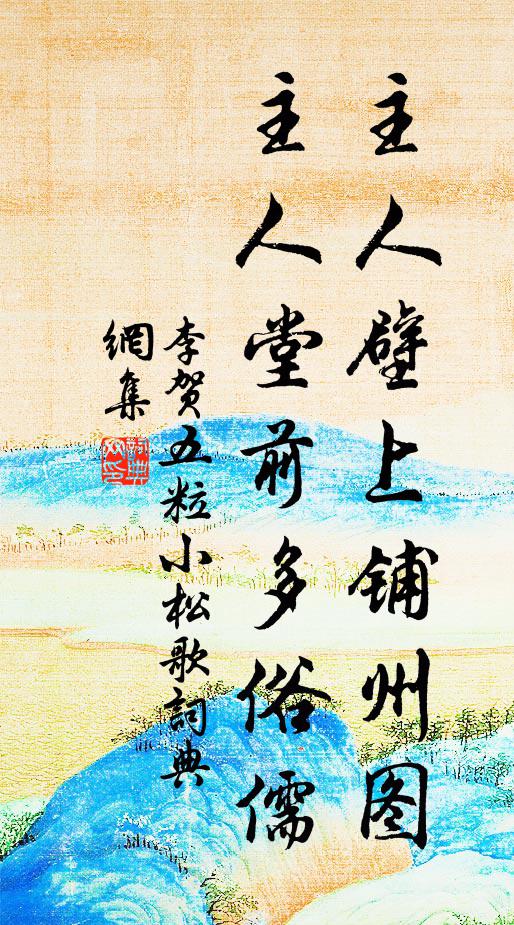 主人壁上铺州图
主人堂前多俗儒
李贺五粒小松歌詞典
網集